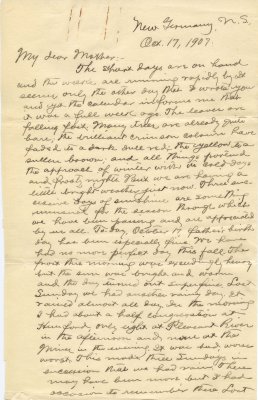 New Germany, N.S.
Oct. 17, 1907
My dear Mother:-
The short days are on hand
and the weeks are running rapidly by. It
seems only the other day that I wrote you
and yet the calendar informs me that
it was a full week ago. The leaves are
falling fast. Many trees are already quite
bare, the brilliant crimson colours have
faded to a dark dull red the yellow to a
sullen brown; and all things portend
the approach of winter with its cold days
and frosty nights. But we are having a
little bright weather just now. Three suc-
cessive days of sunshine are something
unusual for the season through which
we have been passing and are appreciated
by us all. To-day, October 17, father's birth-
day has been especially fine. We have
had no more perfect day this fall. The
frost this morning was exceedingly heavy
but the sun was bright and warm
and the day turned out superfine. Last
Sunday we had another rainy day, it
rained almost all day. In the morning
I had about a half congregation at
Hemford, only eight at Pleasant River
in the afternoon and none at the
Mines in the evening. It was bad, worse
worst. This made three Sundays in
succession that we had rain. There
may have been more but I had
occasion to remember these last